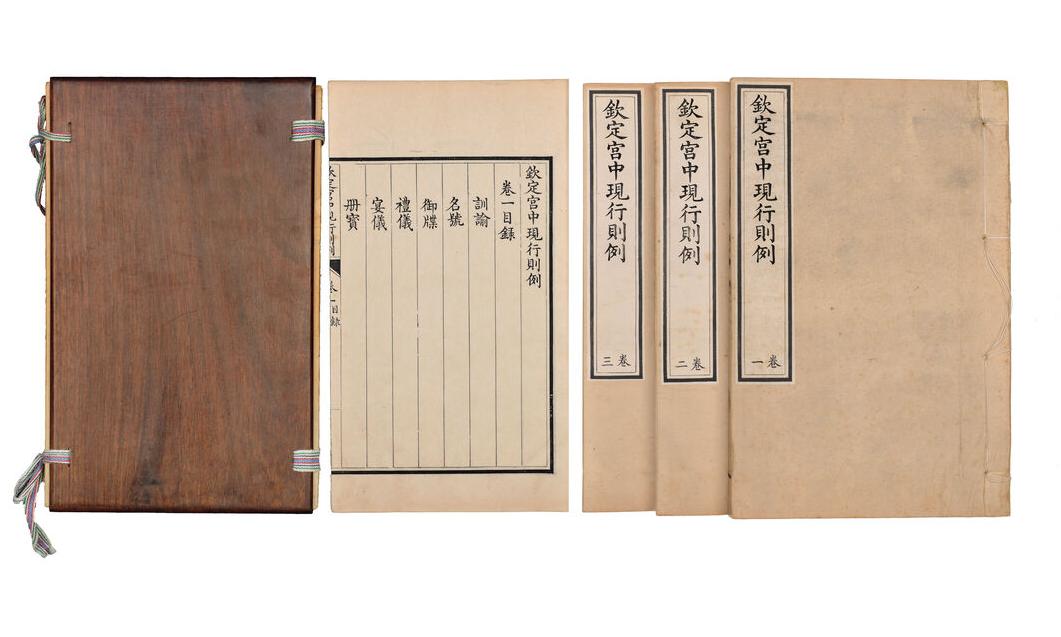 欽定宮中現行則例
卷一目錄
訓諭
名號
御牒
禮儀
宴儀
冊寶
欽定宮中現行則例
卷一目錄
欽定宮中現行則例
卷一
欽定宮中現行則例
卷二
欽定宮中現行則例
卷三